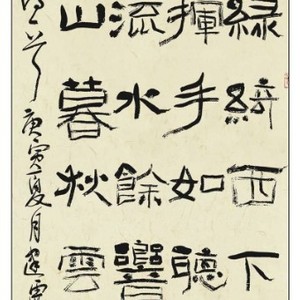 綠綺西下
揮手如聽
流水餘響
山暮秋雲
庚寅夏月建